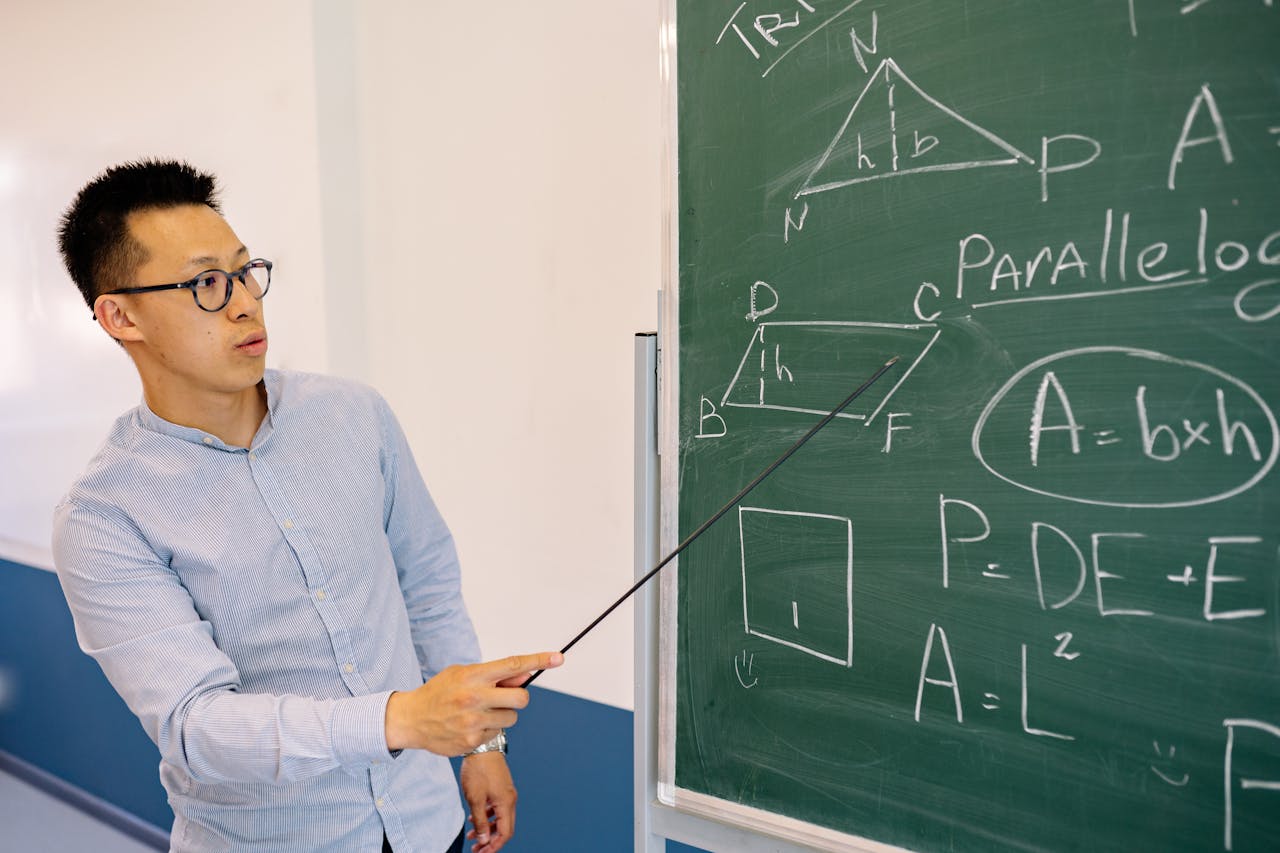 TRI
N
h b
P
N
A =
Parallelo
D
C
h
B
F
A = b×h
P = DE + E
A = L²